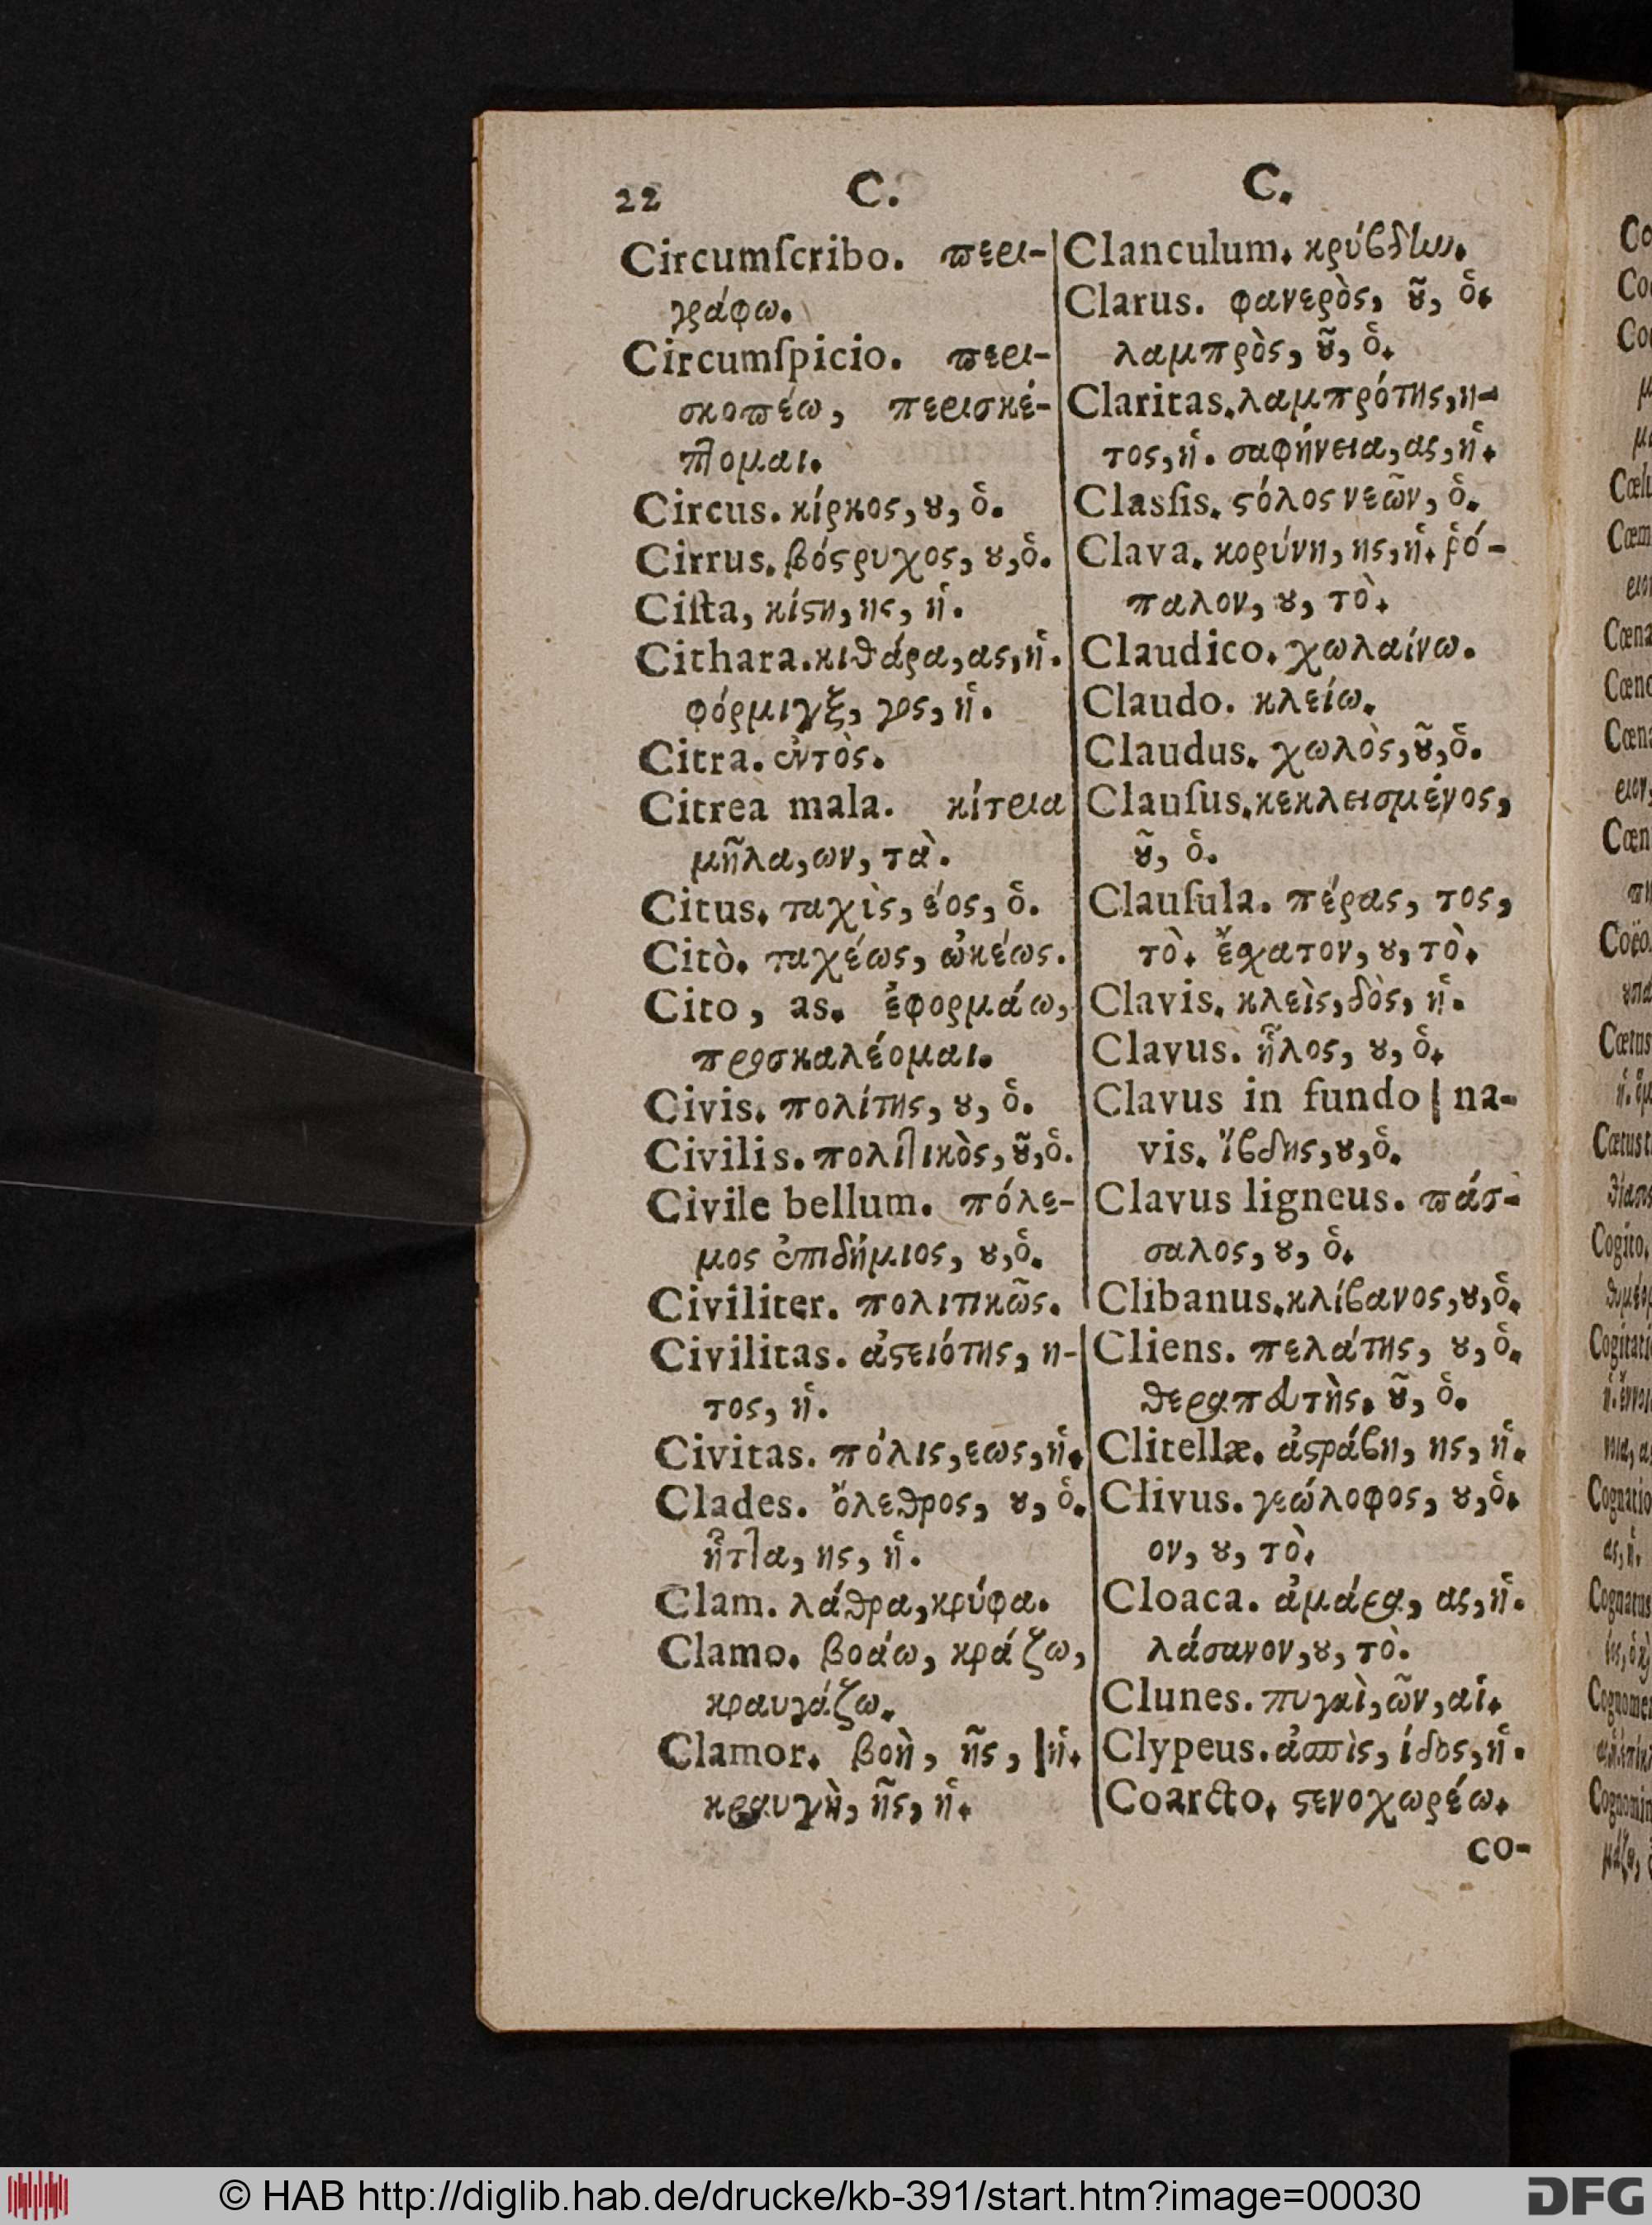 22 C. C.
Circumſcribo. περι-
γράφω.
Circumſpicio. περι-
σκοπέω, περισκέ-
πτομαι.
Circus. κίρκος, ȣ, ὁ.
Cirrus. βόϛρυχος, ȣ, ὁ.
Ciſta, κίϛη, ης, ἡ.
Cithara. κιθάρα, ας, ἡ.
φόρμιγξ, γος, ἡ.
Citra. ἐντὸς.
Citrea mala. κίτρια
μῆλα, ων, τὰ.
Citus. ταχὶς, έος, ὁ.
Citò. ταχέως, ὠκέως.
Cito, as. ἐφορμάω,
προσκαλέομαι.
Civis. πολίτης, ȣ, ὁ.
Civilis. πολιτικὸς, ȣ͂, ὁ.
Civile bellum. πόλε-
μος ἐπιδήμιος, ȣ, ὁ.
Civiliter. πολιτικῶς.
Civilitas. ἀϛειότης, η-
τος, ἡ.
Civitas. πόλις, εως, ἡ.
Clades. ὄλεθρος, ȣ, ὁ.
ἧττα, ης, ἡ.
Clam. λάθρα, κρύφα.
Clamo. βοάω, κράζω,
κραυγάζω.
Clamor. βοὴ, ῆς, ἡ.
κραυγὴ, ῆς, ἡ.
Clanculum. κρύβδην.
Clarus. φανερὸς, ȣ͂, ὁ.
λαμπρὸς, ȣ͂, ὁ.
Claritas. λαμπρότης, η-
τος, ἡ. σαφήνεια, ας, ἡ.
Classis. ϛόλος νεῶν, ὁ.
Clava. κορύνη, ης, ἡ. ῥό-
παλον, ȣ, τὸ.
Claudico. χωλαίνω.
Claudo. κλείω.
Claudus. χωλὸς, ȣ͂, ὁ.
Clauſus. κεκλεισμένος,
ȣ͂, ὁ.
Clauſula. πέρας, τος,
τὸ. ἔσχατον, ȣ, τὸ.
Clavis. κλεὶς, δὸς, ἡ.
Clavus. ἧλος, ȣ, ὁ.
Clavus in fundo na-
vis. ἴβδης, ȣ, ὁ.
Clavus ligneus. πάσ-
σαλος, ȣ, ὁ.
Clibanus. κλίβανος, ȣ, ὁ.
Cliens. πελάτης, ȣ, ὁ.
θεραπευτὴς, ȣ͂, ὁ.
Clitellæ. ἀϛράβη, ης, ἡ.
Clivus. γεώλοφος, ȣ, ὁ.
ον, ȣ, τὸ.
Cloaca. ἀμάρα, ας, ἡ.
λάσανον, ȣ, τὸ.
Clunes. πυγαὶ, ῶν, αἱ.
Clypeus. ἀσπὶς, ίδος, ἡ.
Coarcto. ϛενοχωρέω.
co-
© HAB http://diglib.hab.de/drucke/kb-391/start.htm?image=00030
DFG